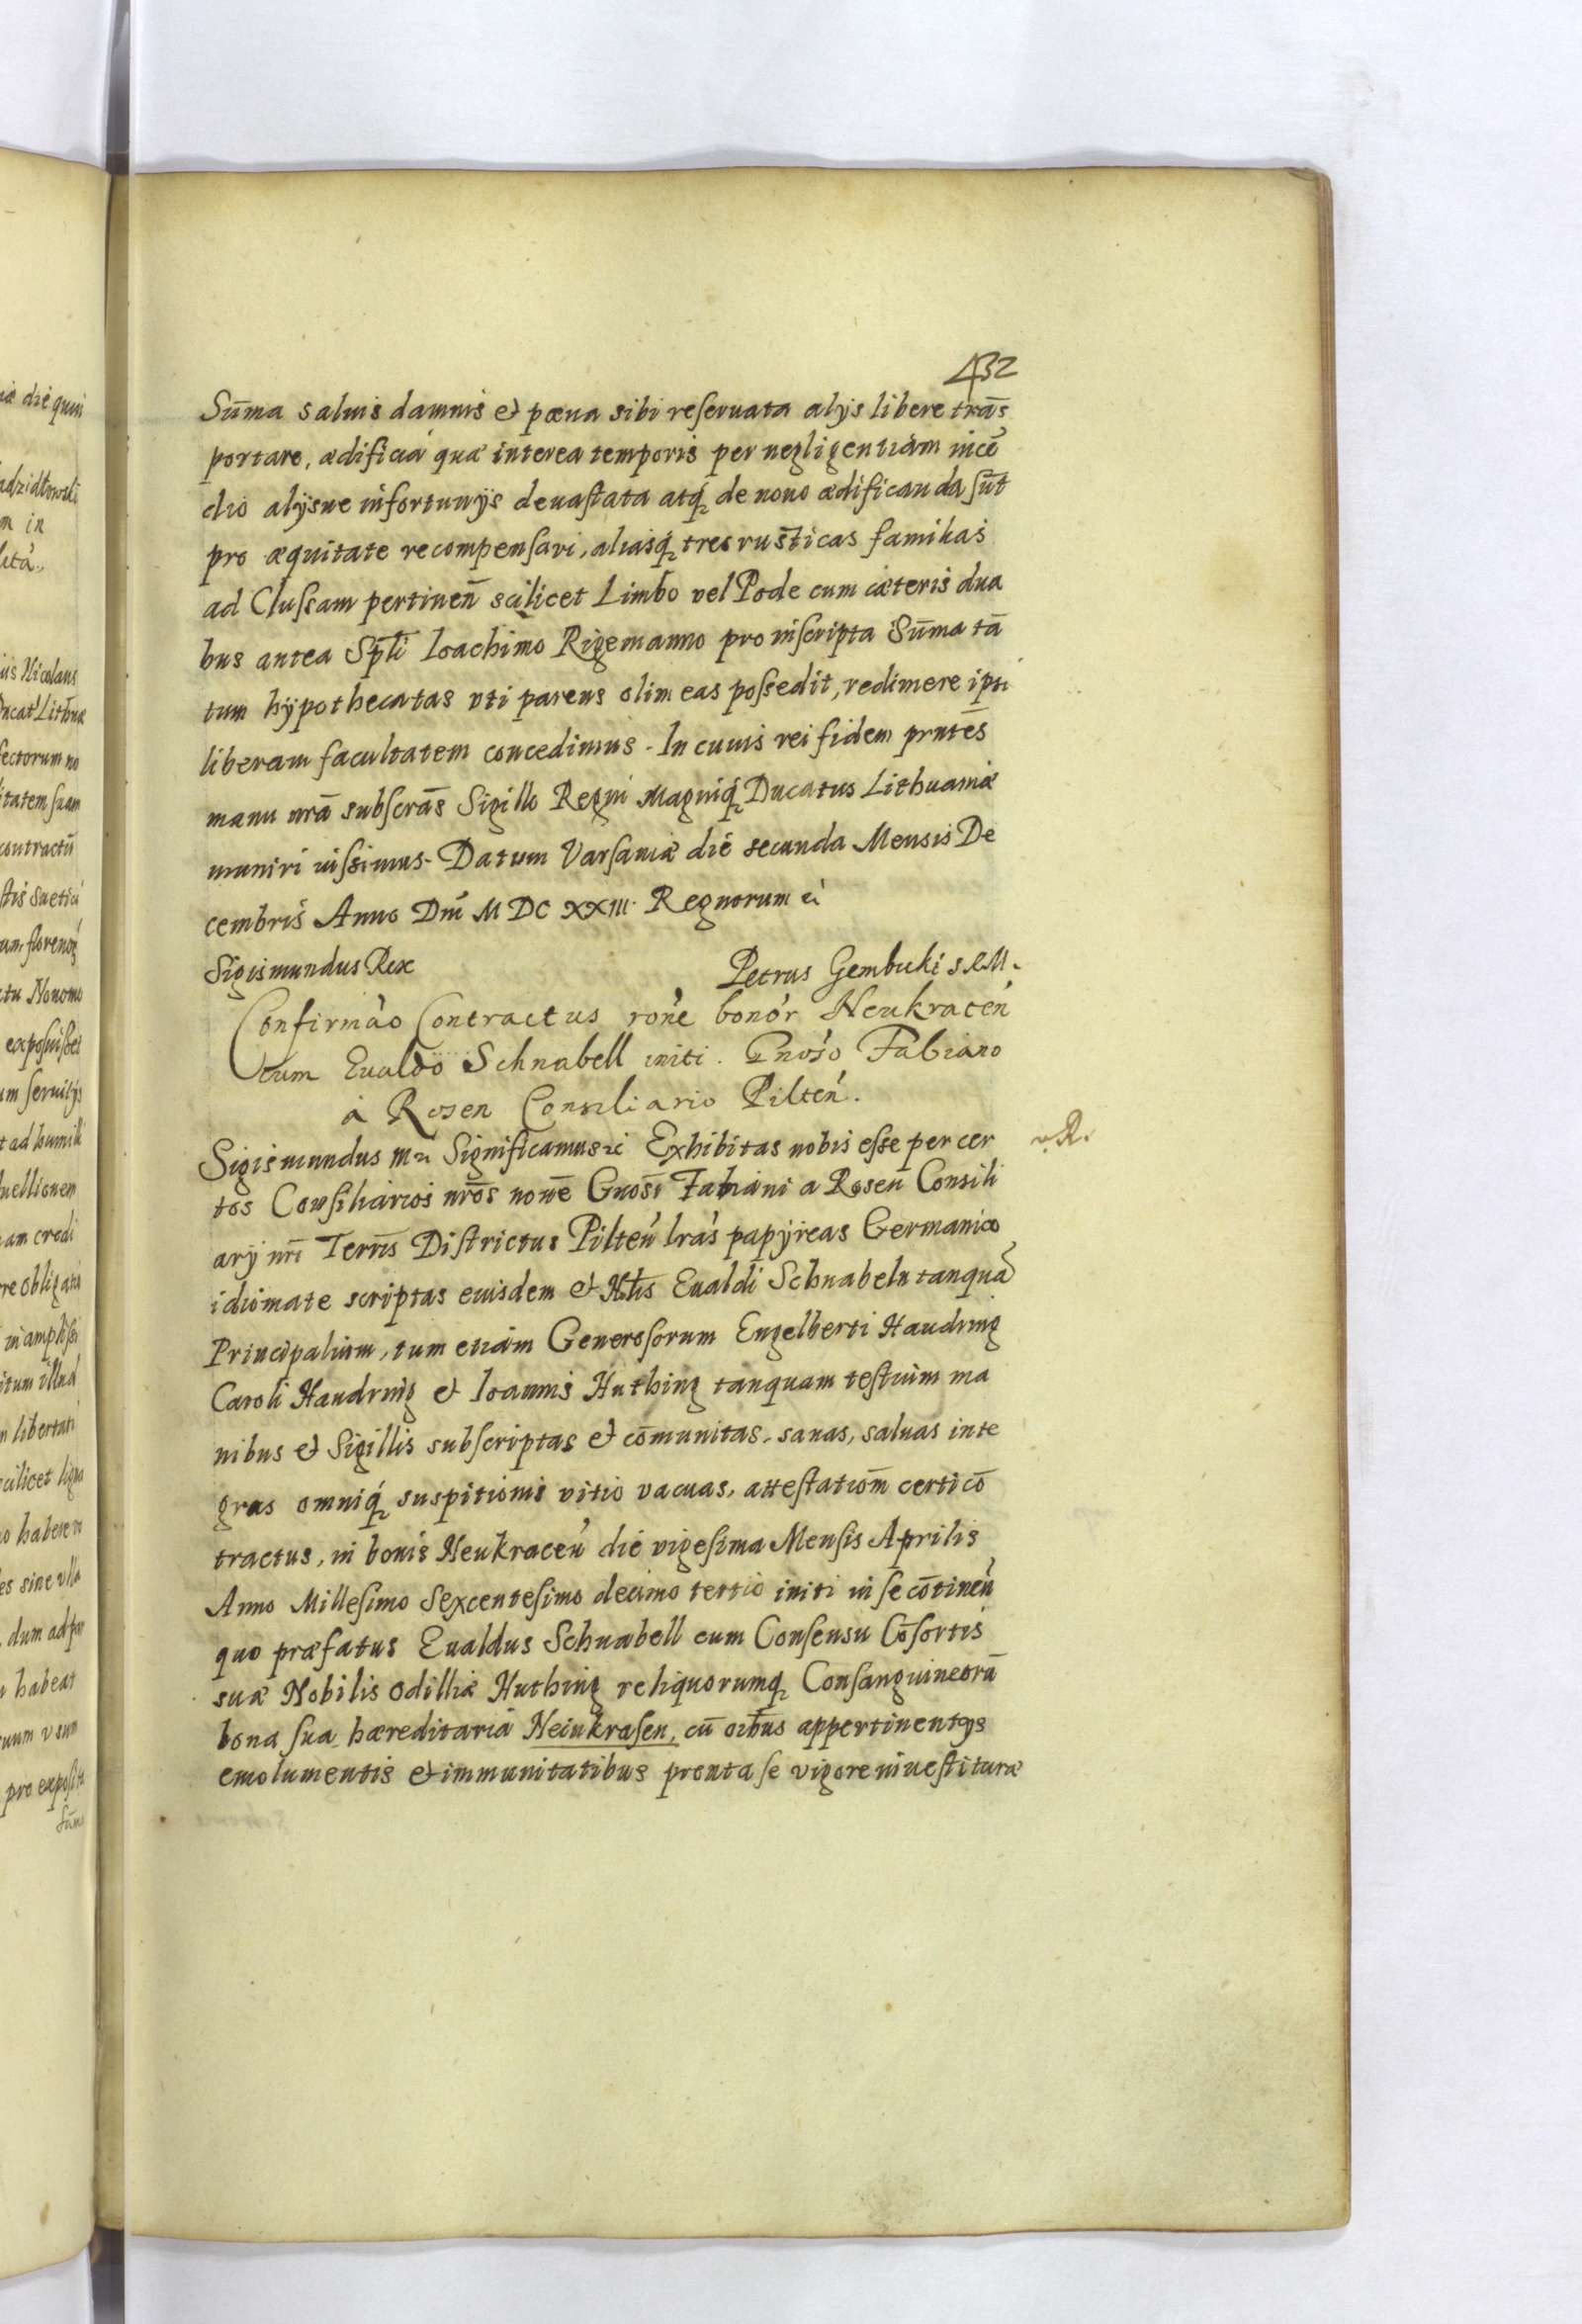 432
Sum̄a saluis damnis et pœna sibi reseruata alijs libere trās
portare, ædificia quæ interea temporis per negligentiam incē
dio alijsue infortunijs deuastata atq́ de nouo ædificanda sūt
pro æquitate recompensari, aliasq́ tres rusticas familias
ad Clussam pertinen̄ scilicet Limbo vel Pode cum cæteris dua
bus antea Sptli Ioachimo Rigemanno pro inscripta Sūma tā
tum hÿpothecatas vti parens olim eas possedit, redimere ipsi
liberam facultatem concedimus. In cuius rei fidem prntēs
manu nrā subscrās Sigillo Regni Magniq́ Ducatus Lithuaniæ
muniri iussimus. Datum Varsauiæ die secunda Mensis De
cembris Anno Dni M DC XXIII. Regnorum &
Sigismundus Rex
Petrus Gembicki S R M.
Confirmào Contractus rone bonor Neukracen
cum Eualdo Schnabell initi. Gnoso Fabiano
à Rosen Consiliario Pilten.
Sigismundus III Significamus &c Exhibitas nobis esse per cer
tos Consiliarios nrōs noīe Gnosi Fabiani a Rosen Consili
arij nrī Terris Districtus Pilten lras papÿreas Germanico
idiomate scriptas eiusdem et Nlis Eualdi Schnabeln tanquā
Principalium, tum etiam Generosorum Engelberti Haudring
Caroli Haudring et Ioannis Huthing tanquam testium ma
nibus et Sigillis subscriptas et cōmunitas, sanas, saluas inte
gras omniq́ suspitionis vitio vacuas, attestatiom̄ certi cō
tractus, in bonis Neukracen die vigesima Mensis Aprilis
Anno Millesimo Sexcentesimo decimo tertio initi in se cōtinen
quo præfatus Eualdus Schnabell cum Consensu Cōsortis
suæ Nobilis Odilliæ Huthing reliquorumq́ Consanguineorū
bona sua hæreditaria Neiukrasen, cū oibus appertinentijs
emolumentis et immunitatibus prout a se vigore inuestituræ